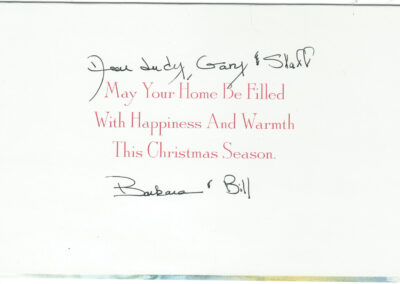 Dear Judy, Gary & Staff
May Your Home Be Filled
With Happiness And Warmth
This Christmas Season.
Barbara & Bill